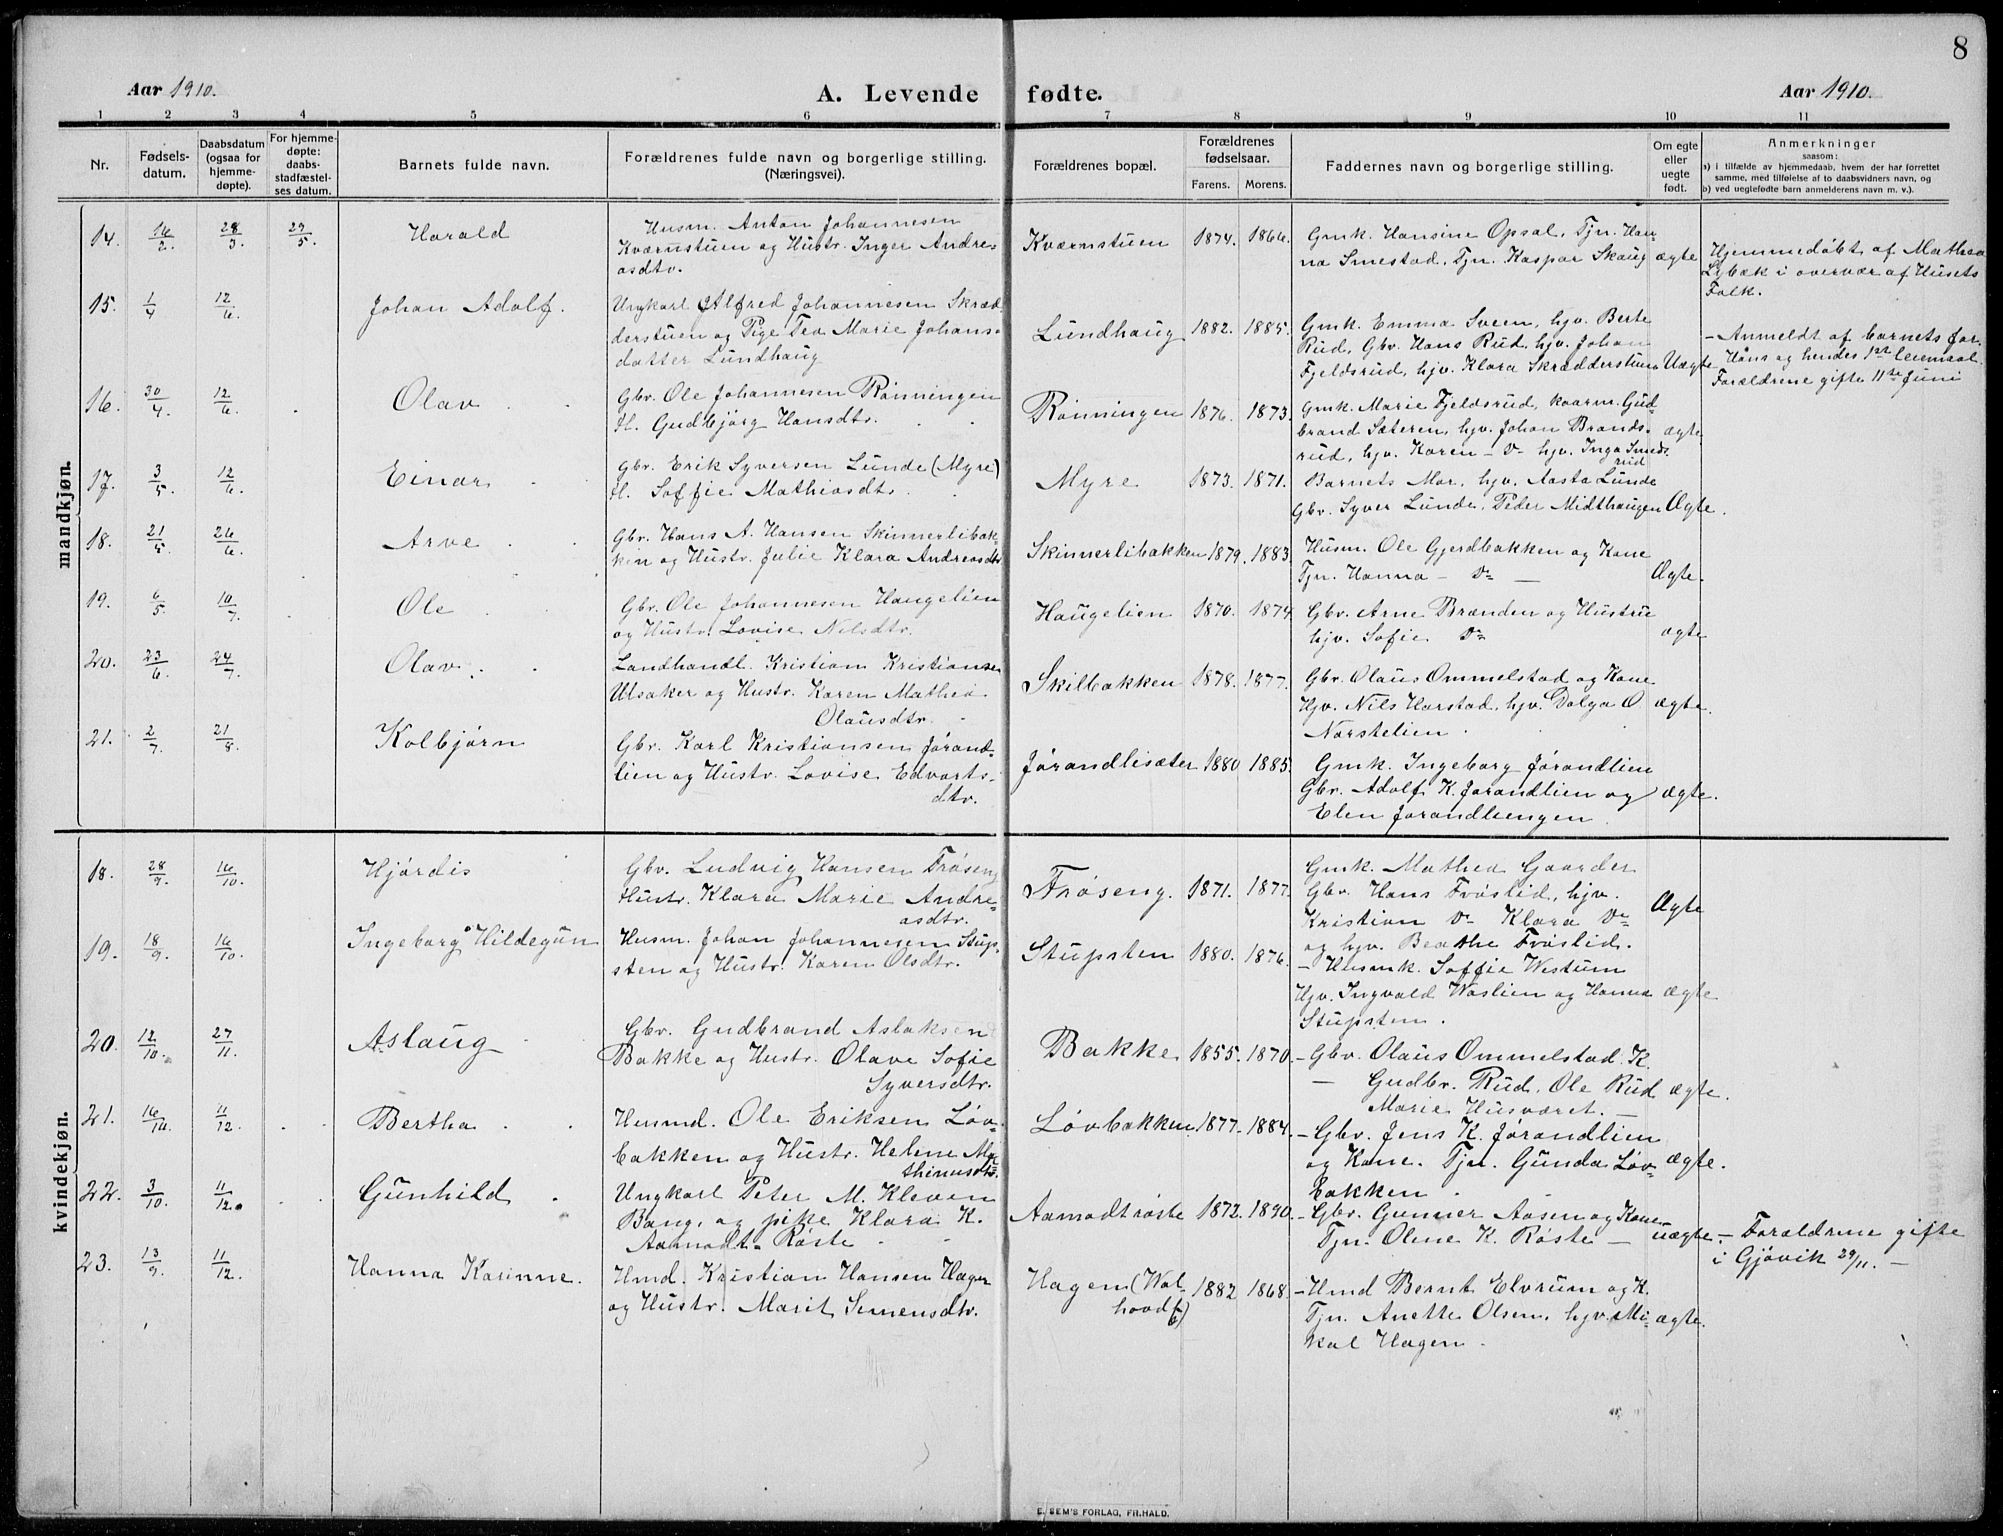 8
Aar 1910.
A. Levende fødte.
Aar 1910.
1 2 3 4 5 6 7 8 9 10 11
Nr.
Fødsels-
datum.
Daabsdatum
(ogsaa for
hjemme-
døpte).
For hjemme-
døpte:
daabs-
stadfæstel-
ses datum.
Barnets fulde navn.
Forældrenes fulde navn og borgerlige stilling.
(Næringsvei).
Forældrenes bopæl.
Forældrenes
fødselsaar.
Farens. Morens.
Faddernes navn og borgerlige stilling.
Om egte
eller
uegte
født.
Anmerkninger
saasom:
a) i tilfælde av hjemmedaab, hvem der har forrettet
samme, med tilføielse af to daabsvidners navn, og
b) ved uegtefødte barn anmelderens navn m. v.).
mandkjøn.
14. 16/2. 28/3. 29/5. Harald
Husm. Anton Johannesen
Kværnstuen og Hustr. Inger Andre-
asdtr.
Kværnstuen 1874. 1866.
Gmk. Hansine Opsal, Tjn. Han-
na Smestad, Tjn. Kaspar Skaug ægte
Hjemmedøbt af Mathea
Lybæk i overvær af Husets
Folk.
15. 1/4 12/6. Johan Adolf.
Ungkarl Alfred Johannesen Skræd-
derstuen og Pige Tea Marie Johans-
datter Lundhaug
Lundhaug 1882. 1885.
Gmk. Emma Sveen, hjv. Berte
Rud, Gbr. Hans Rud, hjv. Johan
Fjeldsrud, hjv. Klara Skrædderstuen Uægte
- Anmeldt af barnets far.
Hans og hendes 1st leiermaal.
Forældrene gifte 11te Juni
16. 30/4. 12/6. Olav
Gbr. Ole Johannesen Rønningen
H. Gudbjørg Hansdtr.
Rønningen 1876. 1873.
Gmk. Marie Fjeldsrud, kaarm. Gud-
brand Sæteren, hjv. Johan Brands-
rud, hjv. Karen - do hjv. Inga Smeds-
rud
ægte
17. 3/5. 12/6. Einar
Gbr. Erik Syversen Lunde (Myre)
H. Soffie Mathiasdtr.
Myre 1873. 1871.
Barnets Mor, hjv. Aasta Lunde
Gbr. Syver Lunde, Peder Midthaugen Ægte.
18. 21/5 26/6. Arve
Gbr. Hans A. Hansen Skinnerlibak-
ken og Hustr. Julie Klara Andreasdtr
Skinnerlibakken 1879. 1883
Husm. Ole Gjerdbakken og Kone
Tjn. Hanna - do - Ægte.
19. 6/5. 10/7. Ole
Gbr. Ole Johannesen Haugelien
og Hustr. Lovise Nilsdtr.
Haugelien 1870. 1874.
Gbr. Arne Brænden og Hustru
hjv. Sofie do ægte
20. 23/6. 24/7. Olav.
Landhandl. Kristian Kristiansen
Ulsaker og Hustr. Karen Mathea
Olausdtr.
Skilbakken 1878. 1877.
Gbr. Olaus Ommelstad og Kone
Hjv. Nils Harstad, hjv. Dolga O ægte.
Narstelien.
21. 2/7. 21/8. Kolbjørn
Gbr. Karl Kristiansen Jørand-
lien og Hustr. Lovise Edvarts-
dtr.
Jørandlisæter 1880 1885.
Gmk. Ingeborg Jørandlien
Gbr. Adolf K. Jørandlien og ægte.
Elen Jørandliengen
kvindekjøn.
18. 28/9. 16/10. Hjørdis
Gbr. Ludvig Hansen Frøseng
Hustr. Klara Marie Andre-
asdtr.
Frøseng. 1871. 1877.
Gmk. Mathea Gaarder
Gbr. Hans Frøslid, hjv.
Kristian do Klara do
og hjv. Beathe Frøslid.
Ægte
19. 18/9. 16/10. Ingeborg Hildegun
Husm. Johan Johannesen Stup-
sten og Hustr. Karen Olsdtr.
Stupsten 1880. 1876.
- Husmk. Soffie Westum
Hjv. Ingvald Waslien og Hanna ægte
Stupsten.
20. 12/10. 27/11. Aslaug
Gbr. Gudbrand Aslaksen
Bakke og Hustr. Olave Sofie
Syversdtr.
Bakke 1855. 1870.
- Gbr. Olaus Ommelstad. K.
- Gudbr. Rud, Ole Rud ægte.
Marie Husværet. -
21. 16/10. 11/12. Bertha
Husmd. Ole Eriksen Løv-
bakken og Hustr. Helene Ma-
thinusdtr.
Løvbakken 1877. 1884.
- Gbr. Jens K. Jørandlien
og Kone. Tjn. Gunda Løv- ægte.
bakken.
22. 3/10. 11/12. Gunhild
Ungkarl Peter M. Kleven
Bang, og pike Klara K.
Aamodt-Røste
Aamodtrøste 1872. 1890.
- Gbr. Gunner Aasen og Kone
Tjn. Olene K. Røste - uægte.
- Forældrene gifte
i Gjøvik 29/11. -
23. 13/9. 11/12. Hanna Karinne.
Hmd. Kristian Hansen Hagen
og Hustr. Marit Simensdtr.
Hagen (Wal-
hovd)
1882 1868.
- Hmd Bernt Elvrum og K.
Tjn. Anette Olsen, hjv. Mi- ægte.
kal Hagen.
E. SEM'S FORLAG, FR.HALD.